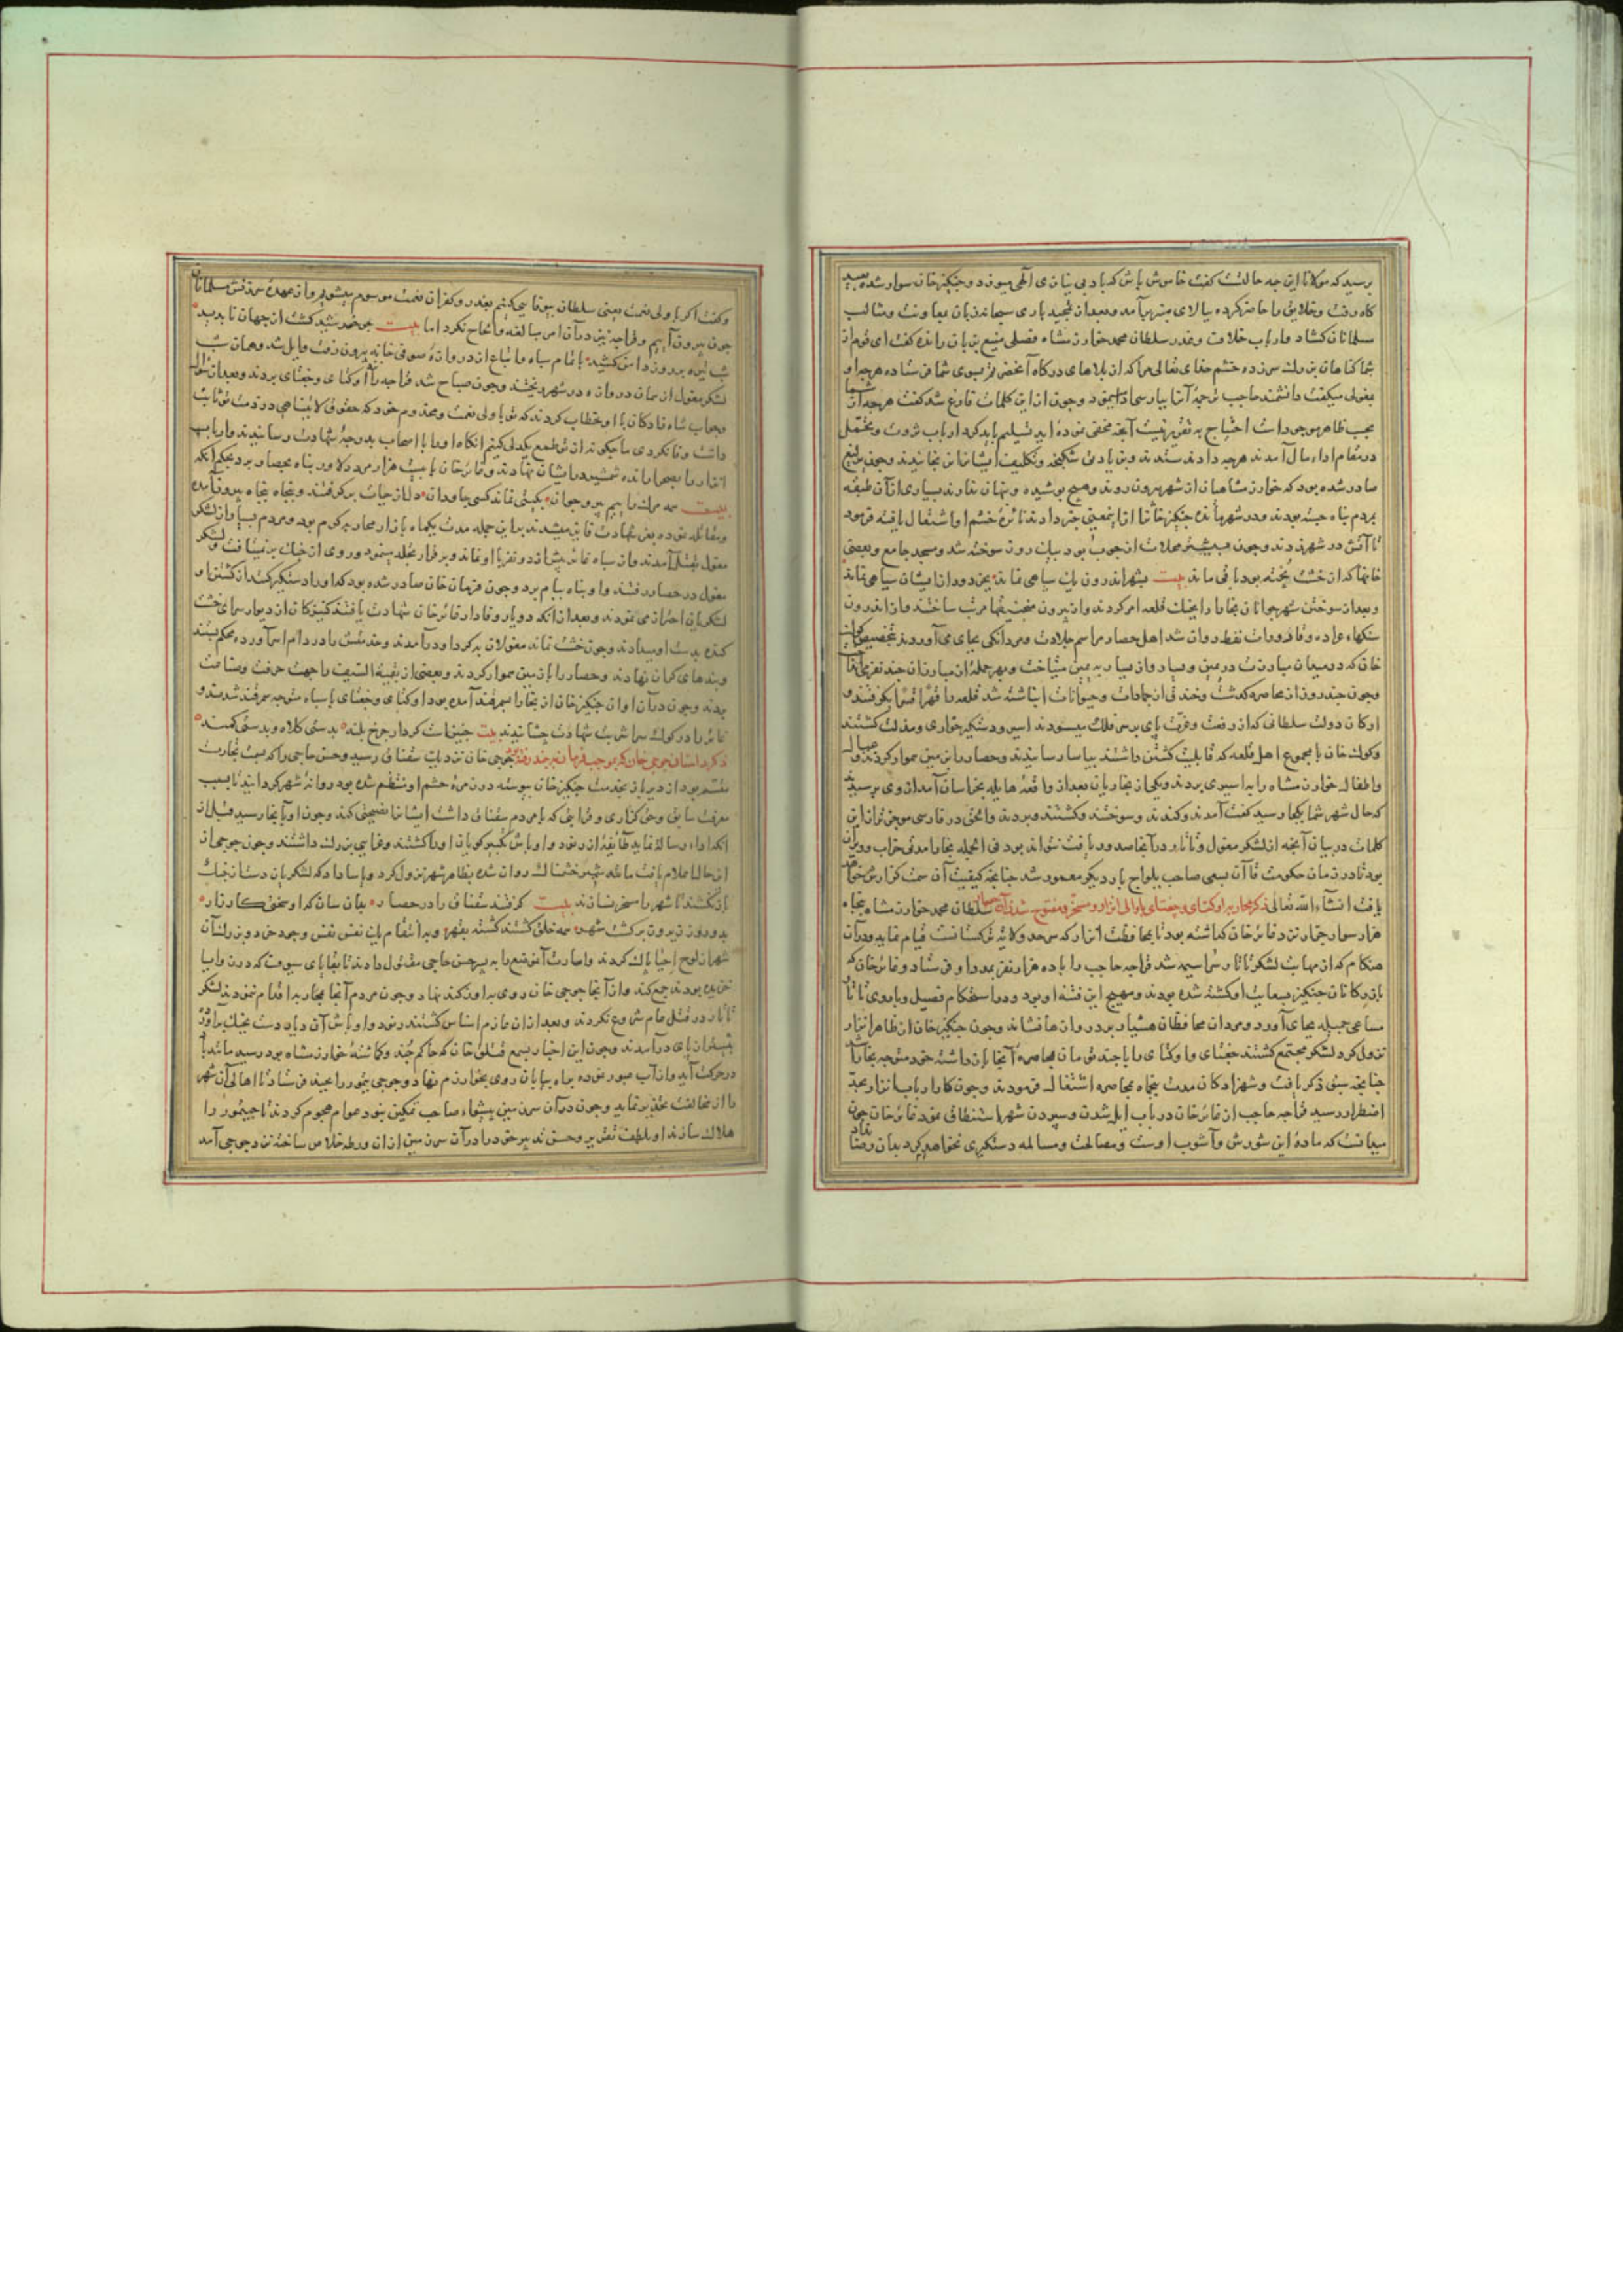 پرسید که مولانا این چه حالتست کفت خاموش باش که باد بی نیازی الهی میوزد و جنکیز خان سوار شده بعید
کاه رفت وخلایق را حاضر کرده ببالای منبر برآمد وبعد از تمجید باری سبحانه زبان بمعاونت ومثالب
مسلمانان کشاد ودر باب خلاف وغدر سلطان محمد خوارزمشاه فصلی مشبع بر زبان رانده کفت ای قوم از
شما کناهان بزرک سر زده خشم خدای تعالی مرا که از بلاهای درکاه آنحضرتم بسوی شما فرستاده هرچه او
بمغولی میکفت دانشمند حاجب ترجمه آنرا بپارسی ادا می نمود وجون از این کلمات فارغ شد کفت هرچه از شما
بحسب ظاهر موجود است احتیاج به تقریر نیست آنچه مخفی نموده اید تسلیم باید کرد ارباب ثروت
در مقام اداء مال آمدند هرچه دادند ستدند
صادر شده بود که خوارزمشاهیان از شهر بیرون روند وهیچ پوشیده وپنهان ندارند بسیاری از آن طبقه
بمردم پناه جسته بودند ودر شهر مانده جنکیز خانرا از اینمعنی خبر دادند نائره خشم او اشتعال یافته فرمود
تا آتش در شهر زدند وجون بیشتر محلات از جوب بود بیک روز سوخته شد ومسجد جامع وبعضی
خانها که از خشت پخته بود باقی ماند بیت بشهر اندرون یک سپاهی نماند بجز دود از ایشان سیاهی نماند
وبعد از سوختن شهر جوانان بخارا را بجنک قلعه امر کردند واز بیرون منجنیقها مرتب ساختند واز اندرون
سنکهاء عراده وقارورات نفط روان شد اهل حصار مراسم جلادت ومردانکی بجای می آوردند بتخصیص کوک
خان که در میدان مبارزت
وجون چند روز از محاصره کذشت وخندق از جمادات وحیوانات انباشته شد قلعه را قهرا قسرا بکرفتند و
ارکان دولت سلطانی که از رفعت وعزت پای بر سر فلک میسودند اسیر ودستکیر خواری ومذلت کشتند
وکوک خان با مجموع اهل قلعه که قابلیت کشتن داشتند بیاسا رسانیدند وحصار را با زمین هموار کردند وعیال
واطفال خوارزمشاه را به اسیری بردند ویکی از بخاریان بعد از واقعه هایله بخراسان آمد از وی پرسیدند
که حال شهر شما بکجا رسید کفت آمدند وکندند وسوختند وکشتند وبردند والحق در فارسی موجزتر از این
کلمات در بیان آنچه از لشکر مغول وتاتار در آنجا صدور یافت نتواند بود فی الجمله بخارا مدتی خراب وویران
بود تا در زمان حکومت قاآن بسعی صاحب یلواج بار دیکر معمور شد جنانچه کیفیت آن سمت کزارش خواهد
یافت انشاء الله تعالی ذکر محاربه اوکتای وجغتای با والی اترار ومسخر ومفتوح شدن آن سلطان محمد خوارزمشاه پنجاه
هزار سوار جرار نزد غایر خان کذاشته بود تا بمحافظت اترار که سرحد ولایت ترکستانست قیام نماید ودر آن
هنکام که از مهابت لشکر تاتار سراسیمه شد قراجه حاجب را با ده هزار نفر بمدد او فرستاد وغایر خان که
بازرکانان جنکیز بسعایت او کشته شده بودند ومهیج این فتنه او بود ودر استحکام فصیل وباروی
مساعی جمیله بجای آورد ومردان محافظان هشیار بر دروازها نشاند وجون جنکیز خان از ظاهر اترار
نزول کرد لشکر مجتمع کشتند جغتای واوکتای را با چند تومان بمحاصره آنجا باز داشته خود متوجه بخارا
جنانچه سبق ذکر یافت وشهزادکان مدت پنجماه بمحاصره اشتغال فرمودند وجون کار ارباب اترار بحد
اضطرار رسید قراجه حاجب از غایر خان در باب ایل شدن وسپردن شهر استنطاق نمود غایر خان چون
میدانست که ماده این شورش وآشوب اوست ومصالحت ومسالمه دستکیری نخواهد کرد بدان رضا نداد
وکفت اکر با ولی نعمت یعنی سلطان بیوفایی کنیم بغدر وکفران نعمت موسوم میشویم واز عهده سرزنش مسلمانان
جون بیرون آییم وقراجه نیز در آن امر مبالغه والحاح نکرد اما بیت جو خورشید کشت از جهان ناپدید
شب تیره بر روز دامن کشید با تمام سپاه واتباع از دروازه صوفی خانه بیرون رفت وایل شد وهمان شب
لشکر مغول از همان دروازه در شهر ریختند وجون صباح شد قراجه را اوکتای وجغتای بردند وبعد از سؤال
وجواب شاه زادکان با او خطاب کردند که تو با ولی نعمت ومخدوم خود که حقوق لا یتناهی در ذمت تو ثابت
داشت وفا نکردی ما جکونه از تو طمع یکدلی کنیم آنکاه او را با اصحاب بدرجه شهادت رسانیدند
اترار را بصحرا رانده شمشیر در ایشان نهادند وغایر خان با بیست هزار مرد دلاور پناه بحصار برد بحکم آنکه
بیت همه مرک راییم پیر وجوان بکیتی نماند کسی جاودان دل از حیات برکرفتند وپنجاه پنجاه بیرون آمده
ومقاتله نموده بعز شهادت فایز میشدند بدین جمله مدت یکماه بازار محاربه کرم بود ومردم بسیار از لشکر
مغول بقتل آمدند واز سپاه غایر بیش از دو نفر با او نماند وبر قرار تجلد مینمود وروی از جنک برنمیتافت ولشکر
مغول در حصار رفتند واو پناه ببام برد وجون فرمان خان صادر شده بود که او را دستکیر کنند از کشتن او
لشکریان احتراز می نمودند وبعد از آنکه دو یار وفادار غایر خان شهادت یافتند کنیزکان از دیوار سرای خشت
کنده بدست او میدادند وجون خشت نماند مغولان بکرد او در آمدند
وبندهای کران نهادند وحصار را با زمین هموار کردند وبعضی از بقیة السیف را جهت حرفت وصناعت
بردند وجون در آن اوان جنکیز خان از بخارا بسمرقند آمده بود اوکتای وجغتای با سپاه متوجه سمرقند شدند و
غایر را در کوک سرای شربت شهادت چشانیدند بیت جنینست کردار چرخ بلند بدستی کلاه وبدستی کمند
ذکر داستان جوجی خان که بموجب فرمان بجند رفته جوجی خان نزدیک سقناق رسید وحسن حاجی را که بسبب تجارت
متسم بود از دیر باز بخدمت جنکیز خان پیوسته در زمره حشم او منتظم شده بود روانه شهر کردانید تا بسبب
معرفت سابق وحق کزاری وقرابتی که با مردم سقناق داشت ایشانرا نصیحتی کند وجون او بآنجا رسید قبل از
آنکه اداء رسالة نماید طایفه از رنود واوباش تکبیر کویان او را کشتند وغزایی بزرک داشتند وجون جوجی از
آن حال اعلام یافت مانند شیر خشمناک روان شده بظاهر شهر نزول کرد ویاسا داد که لشکریان دست از جنک
باز نکشند تا شهر را مسخر نسازند بیت کرفتند سقناق را در حصار بدان سان که او سختی کارزار
بدو روز بیرون برکشت شهر همه خلق کشتند کشته بقهر وبه انتقام یک نفس نقش وجود خرد وبزرک آن
شهر از لوح احیا پاک کردند وامارت آن موضع را به پسر حسن حاجی مقتول دادند تا بقایای سیوف که در زوایا
خزیده بودند جمع کند واز آنجا جوجی خان روی به اوزکند نهاد وجون مردم آنجا بمحاربه اقدام ننمودند لشکر
تاتار در قتل عام شروع نکردند وبعد از آن عازم اشناس کشتند رنود واوباش آن دیار دست بجنک برآوردند
بیشتر از پای درآمدند وجون این اخبار بسمع قتلق خان که حاکم جند وکماشته خوارزمشاه بود رسید
در حرکت آمد واز آب عبور نموده براه بیابان روی بخوارزم نهاد وجوجی جنتمور را بجند فرستاد تا اهالی آن شهر
را از مخالفت تحذیر نماید وجون در آن سرزمین پیشواء صاحب تمکین نبود عوام هجوم کردند تا جنتمور را
هلاک سازند او بلطف تقریر وحسن تدبیر خود را در آن سرزمین از آن ورطه خلاص ساخته نزد جوجی آمد